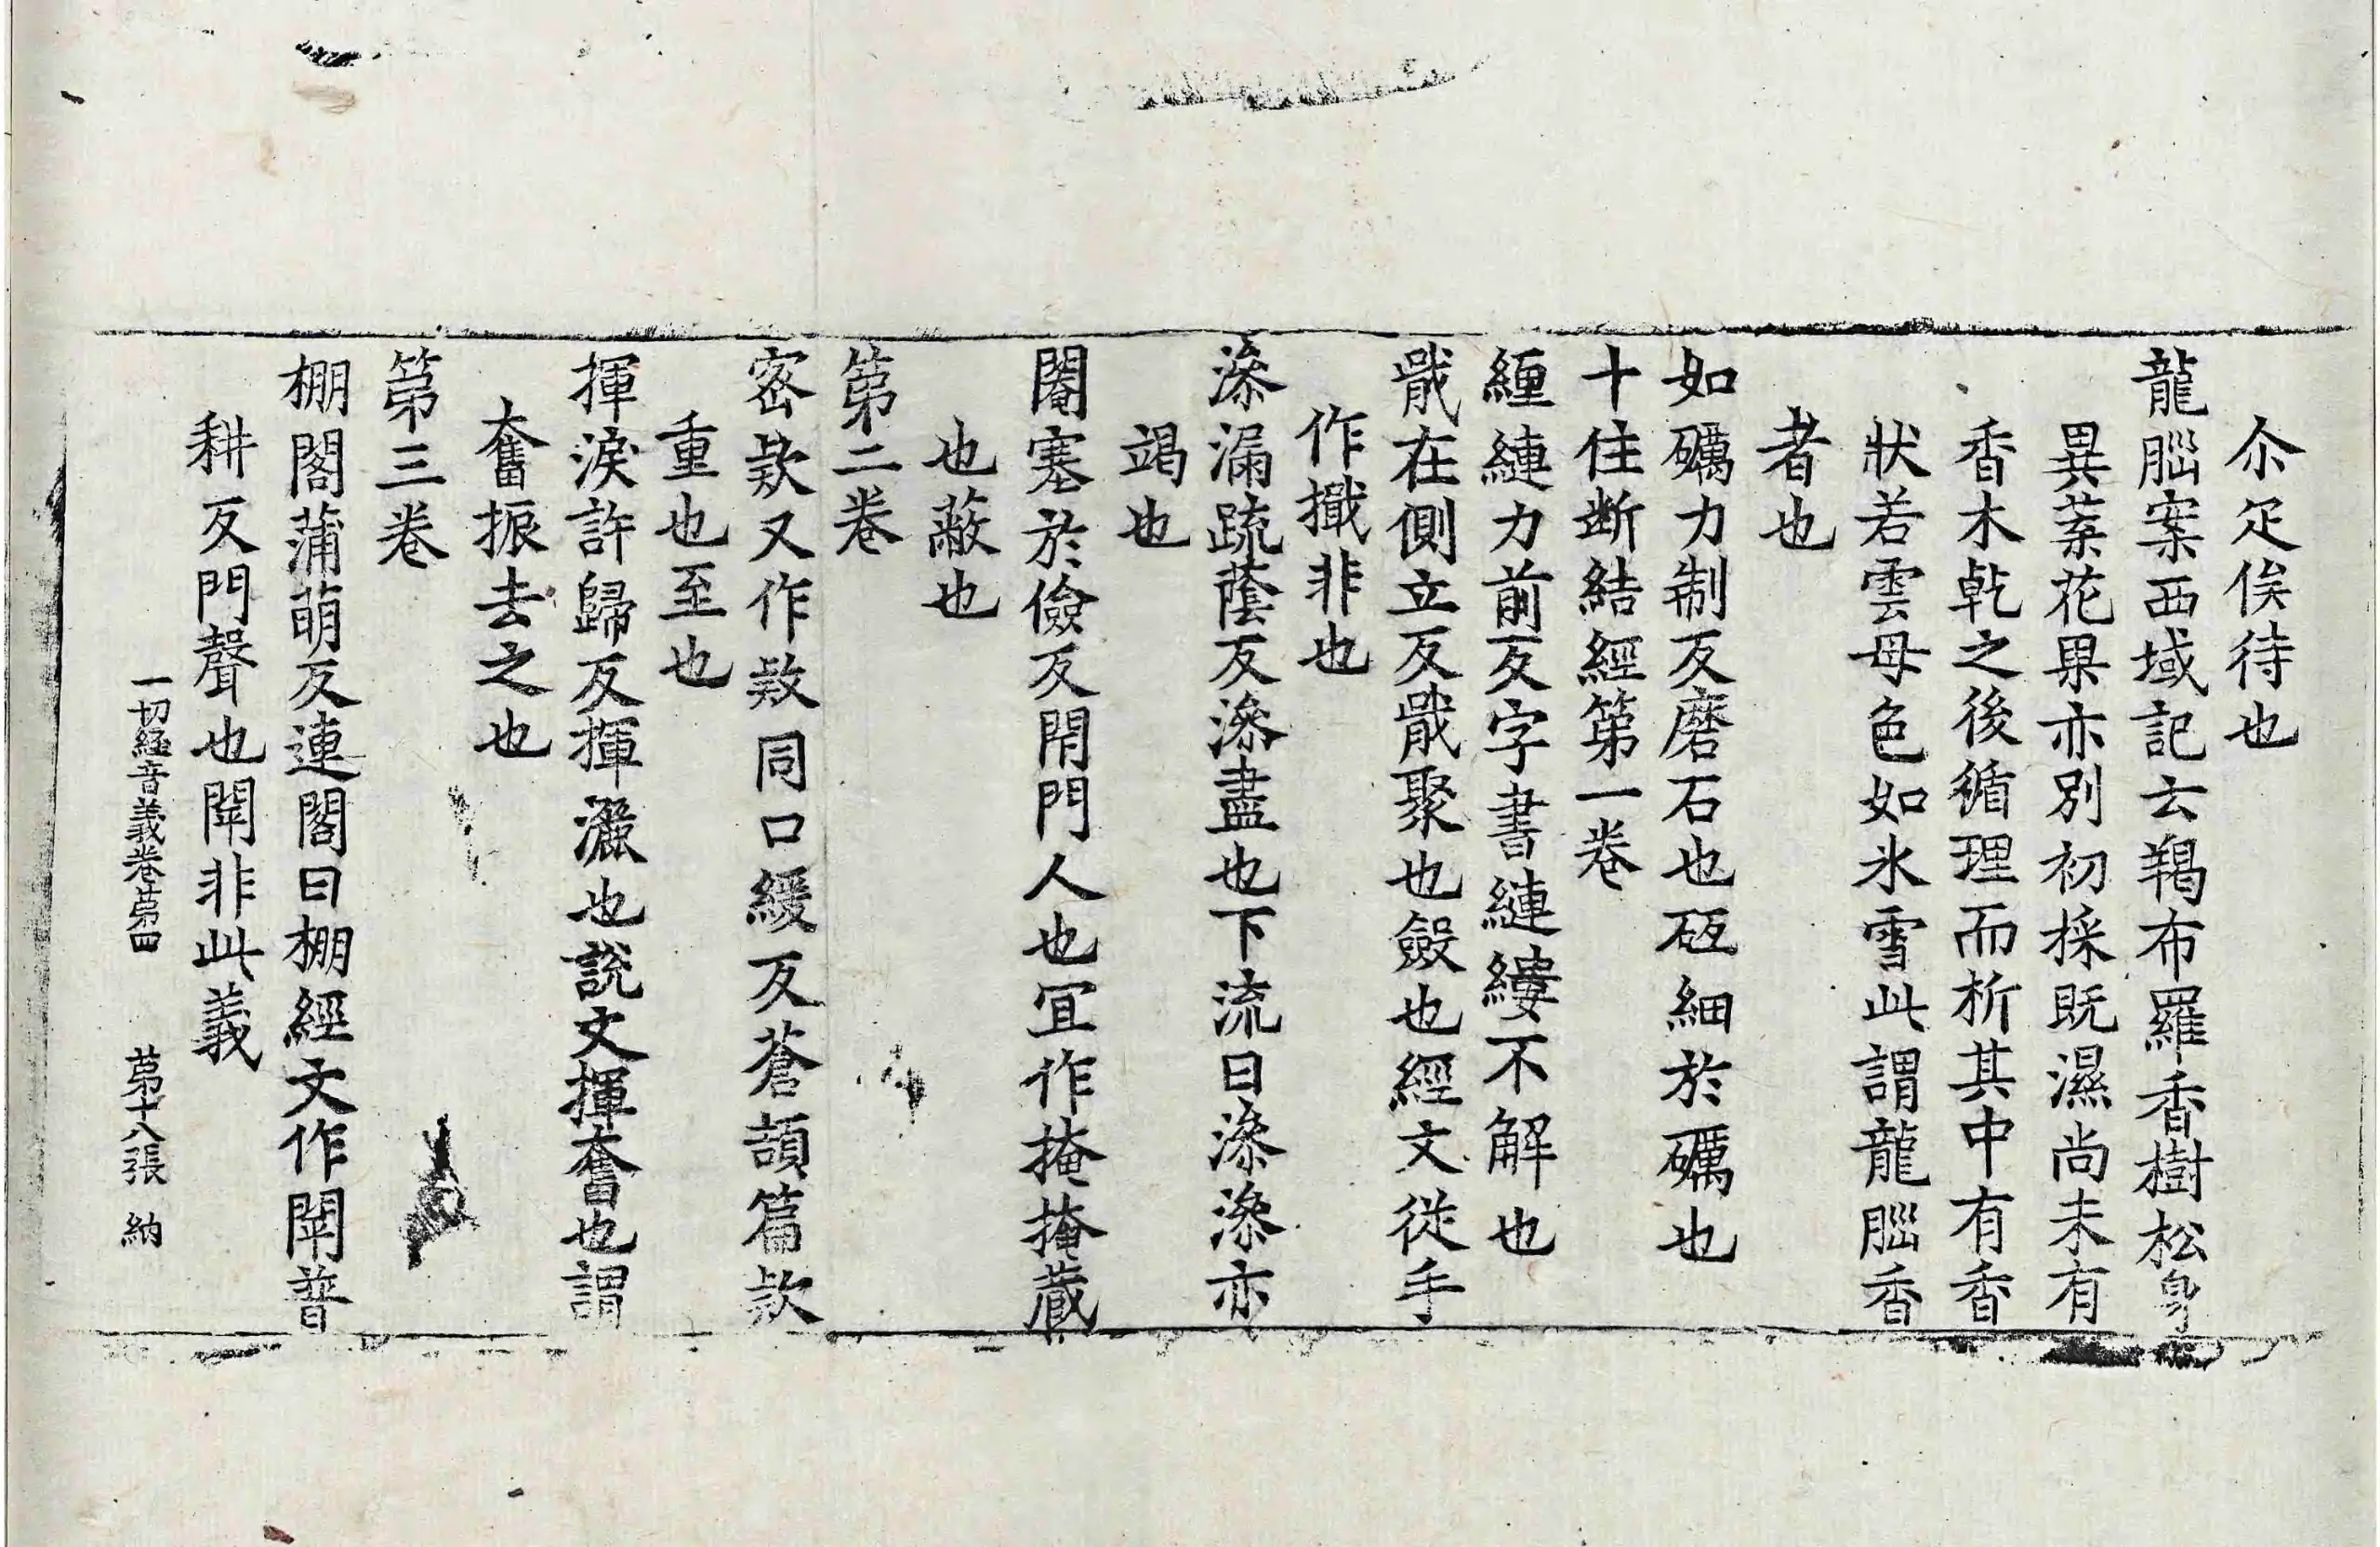 尒疋俟待也
龍腦案西域記云羯布羅香樹松身
異葉花果亦別初採既濕尚未有
香木乾之後循理而析其中有香
狀若雲母色如氷雪此謂龍腦香
者也
如礪力制反磨石也砥細於礪也
十住断結經第一卷
纏縺力前反字書縺縷不解也
戢在側立反戢聚也斂也經文從手
作擮非也
漛漏疏蔭反漛盡也下流曰漛漛亦
竭也
閹塞於儉反閇門人也宜作掩掩蔵
也蔽也
第二卷
密款又作欵同口緩反蒼頡篇款
重也至也
揮淚許歸反揮灑也說文揮奮也謂
奮振去之也
第三卷
棚閣蒲萌反連閣曰棚經文作閛普
耕反門聲也閛非此義
一切経音義卷苐四 苐十八張 納